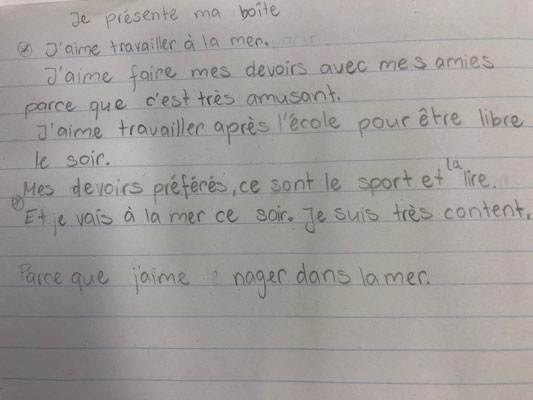 Je présente ma boîte
⊗ J'aime travailler à la mer.
J'aime faire mes devoirs avec mes amies
parce que c'est très amusant.
J'aime travailler après l'école pour être libre
le soir.
Mes devoirs préférés, ce sont le sport et la lire.
⊗ Et je vais à la mer ce soir. Je suis très content.
Parce que j'aime nager dans la mer.